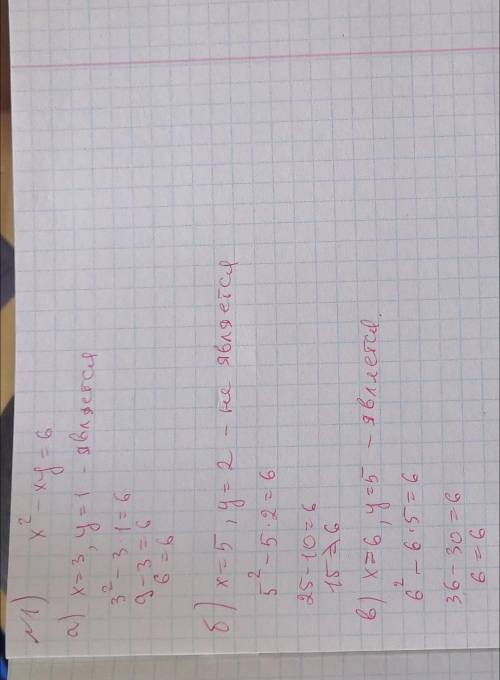 №1) x² - xy = 6
а) x=3, y=1 - является
3² - 3·1=6
9-3=6
6=6
б) x=5, y=2 - не является
5² - 5·2=6
25-10=6
15≠6
в) x=6, y=5 - является.
6² - 6·5=6
36-30=6
6=6